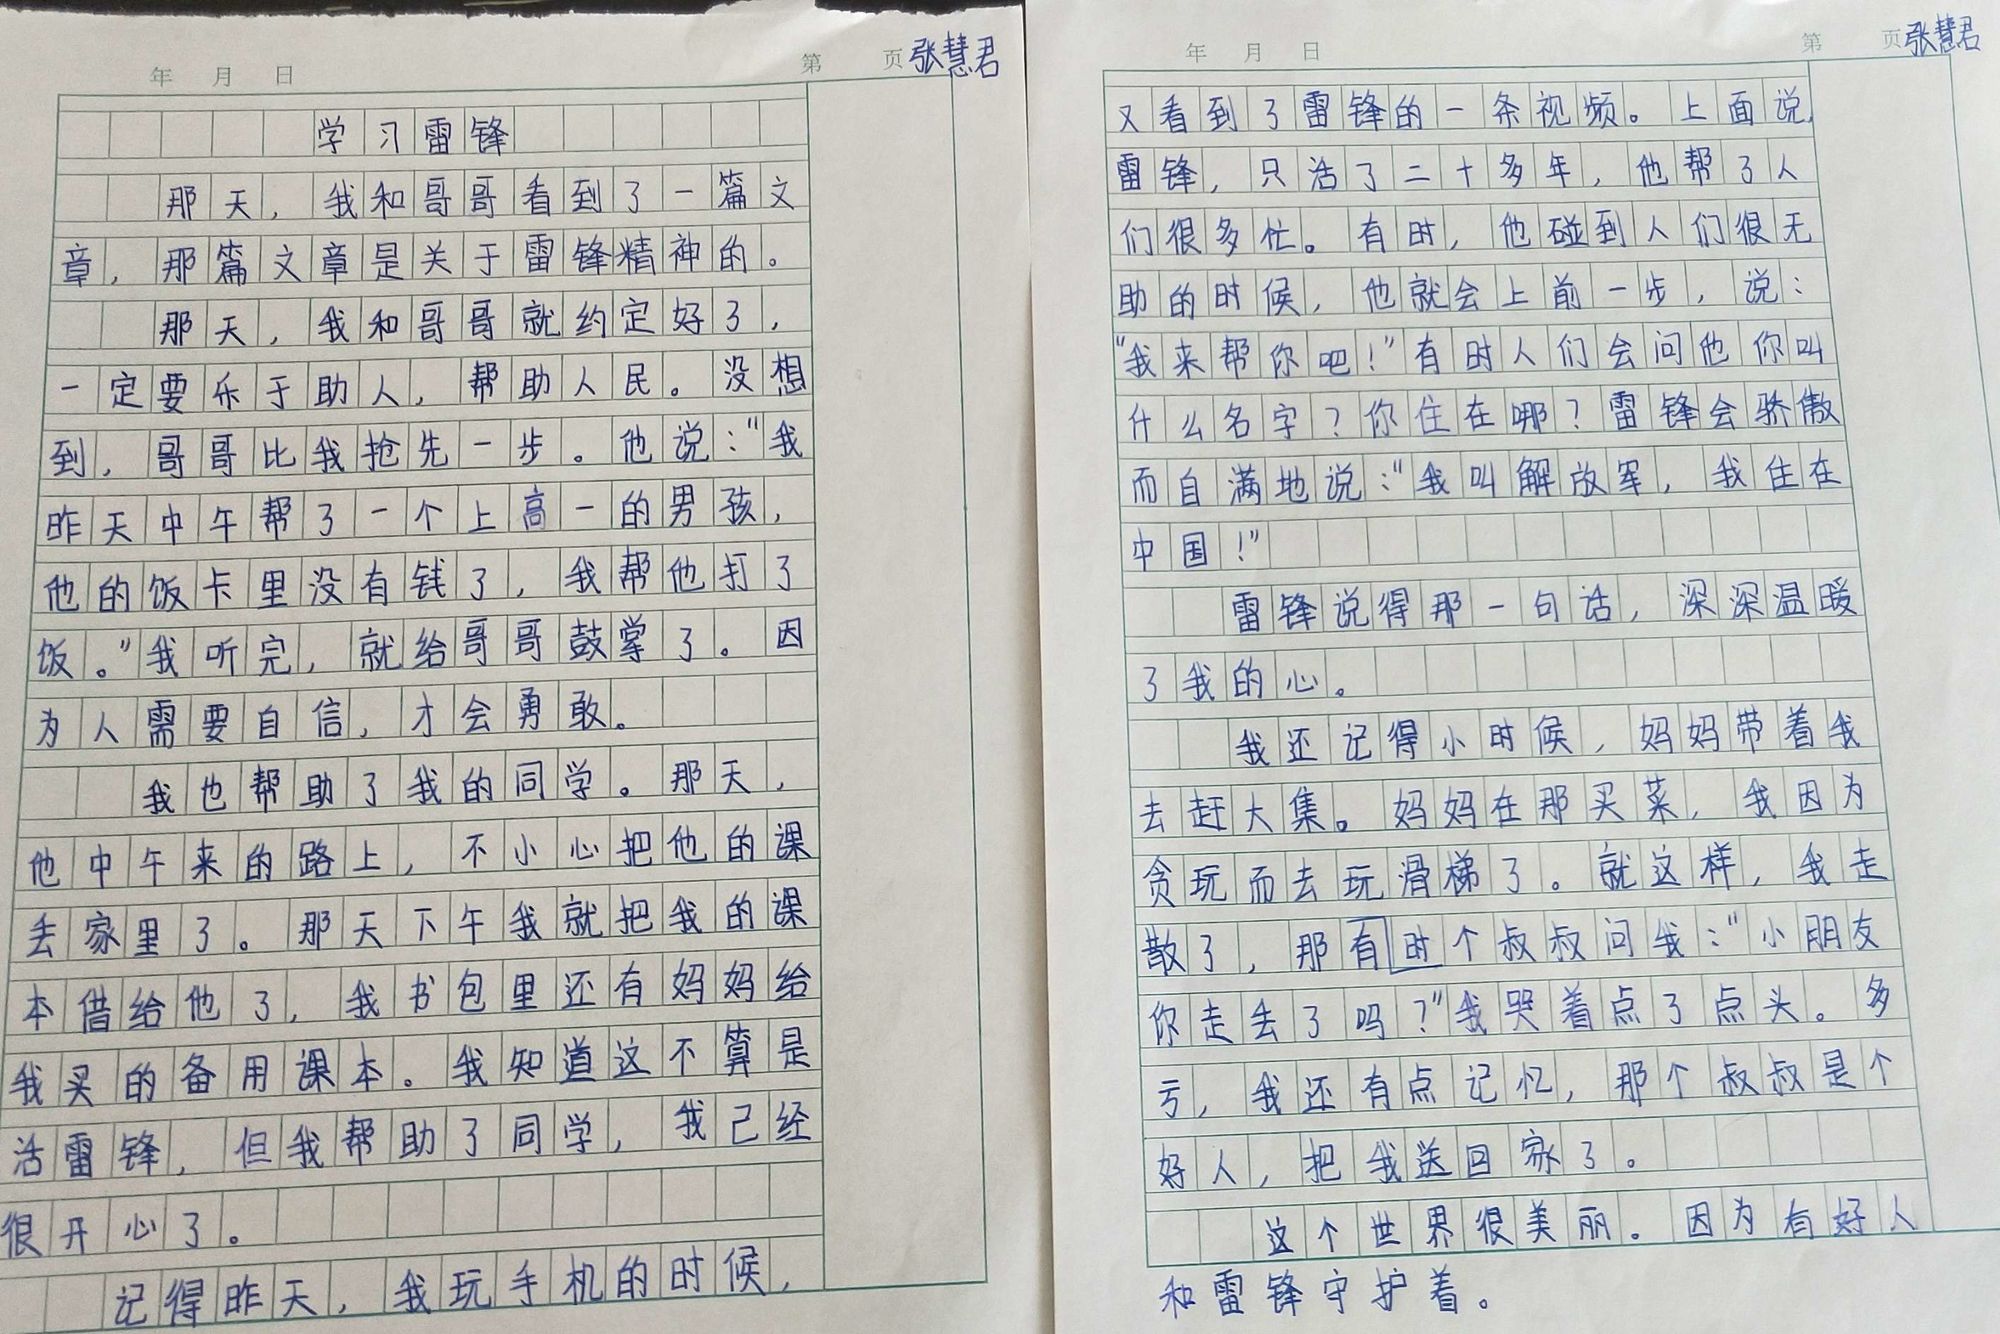 年 月 日 第 页 张慧君
学习雷锋
那天，我和哥哥看到了一篇文
章，那篇文章是关于雷锋精神的。
那天，我和哥哥就约定好了，
一定要乐于助人，帮助人民。没想
到，哥哥比我抢先一步。他说："我
昨天中午帮了一个上高一的男孩，
他的饭卡里没有钱了，我帮他打了
饭。"我听完，就给哥哥鼓掌了。因
为人需要自信，才会勇敢。
我也帮助了我的同学。那天，
他中午来的路上，不小心把他的课
丢家里了。那天下午我就把我的课
本借给他了，我书包里还有妈妈给
我买的备用课本。我知道这不算是
活雷锋，但我帮助了同学，我已经
很开心了。
记得昨天，我玩手机的时候，
年 月 日 第 页 张慧君
又看到了雷锋的一条视频。上面说，
雷锋，只活了二十多年，他帮了人
们很多忙。有时，他碰到人们很无
助的时候，他就会上前一步，说：
"我来帮你吧！"有时人们会问他你叫
什么名字？你住在哪？雷锋会骄傲
而自满地说："我叫解放军，我住在
中国！"
雷锋说得那一句话，深深温暖
了我的心。
我还记得小时候，妈妈带着我
去赶大集。妈妈在那买菜，我因为
贪玩而去玩滑梯了。就这样，我走
散了，那有时个叔叔问我："小朋友
你走丢了吗？"我哭着点了点头。多
亏，我还有点记忆，那个叔叔是个
好人，把我送回家了。
这个世界很美丽。因为有好人
和雷锋守护着。